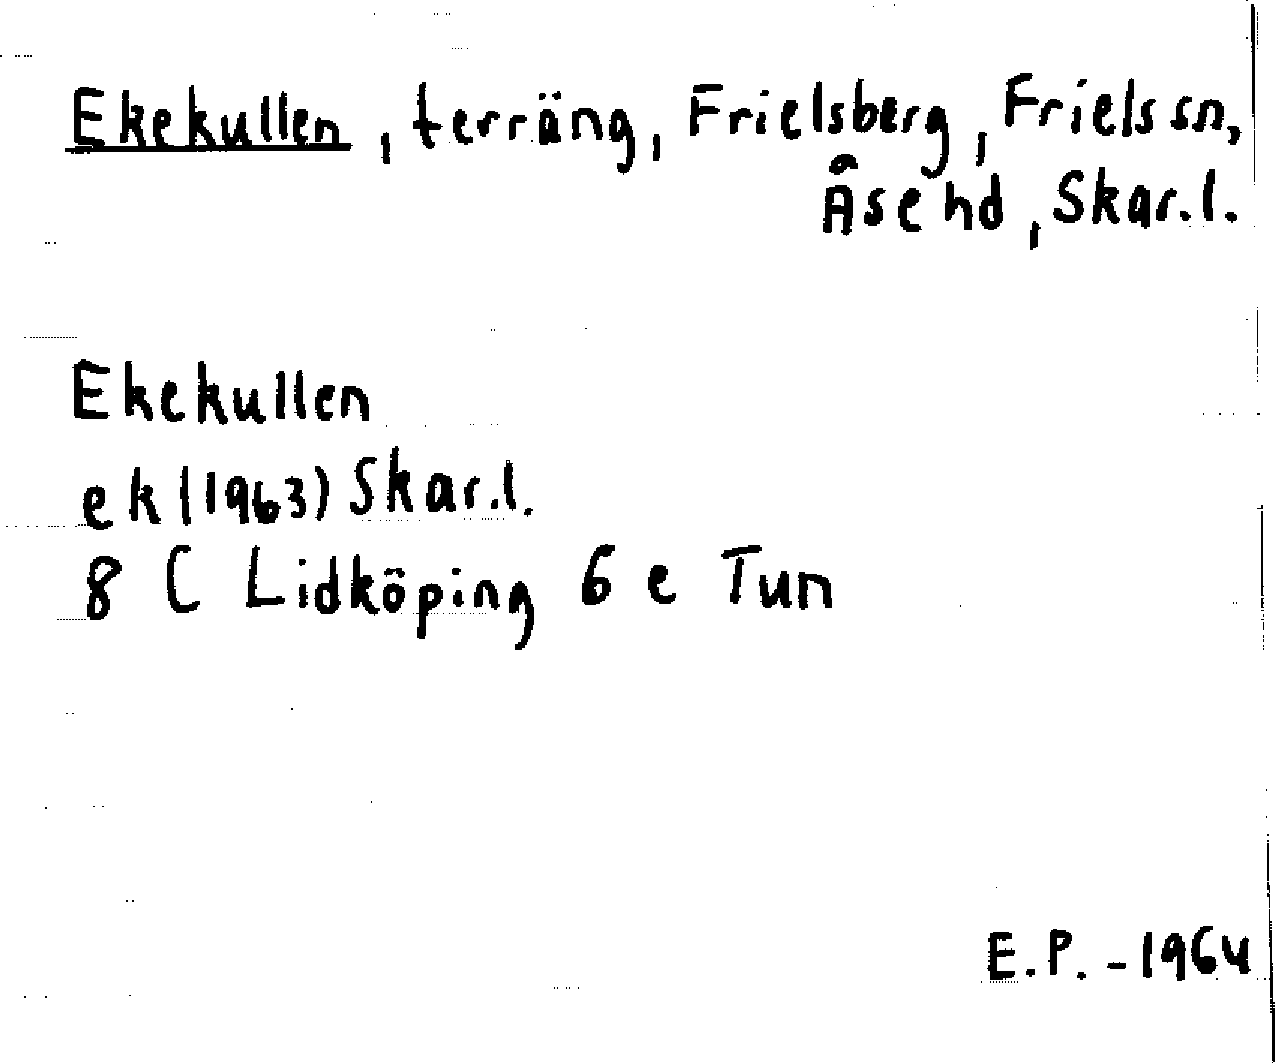 Ekekullen, terräng, Frielsberg, Friels sn,
Åse hd, Skar.l.
Ekekullen
ek (1963) Skar.l.
8 C Lidköping 6 e Tun
E.P. - 1964